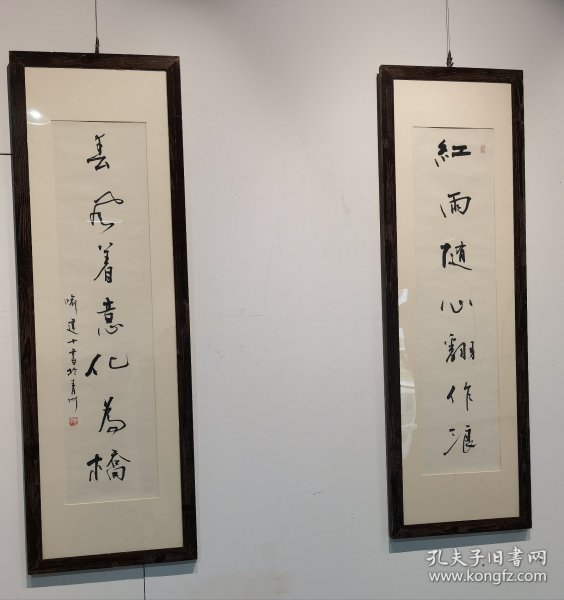 紅雨随心翻作浪
春風着意化為橋
喻建十書於青州
孔夫子旧书网
www.kongfz.com